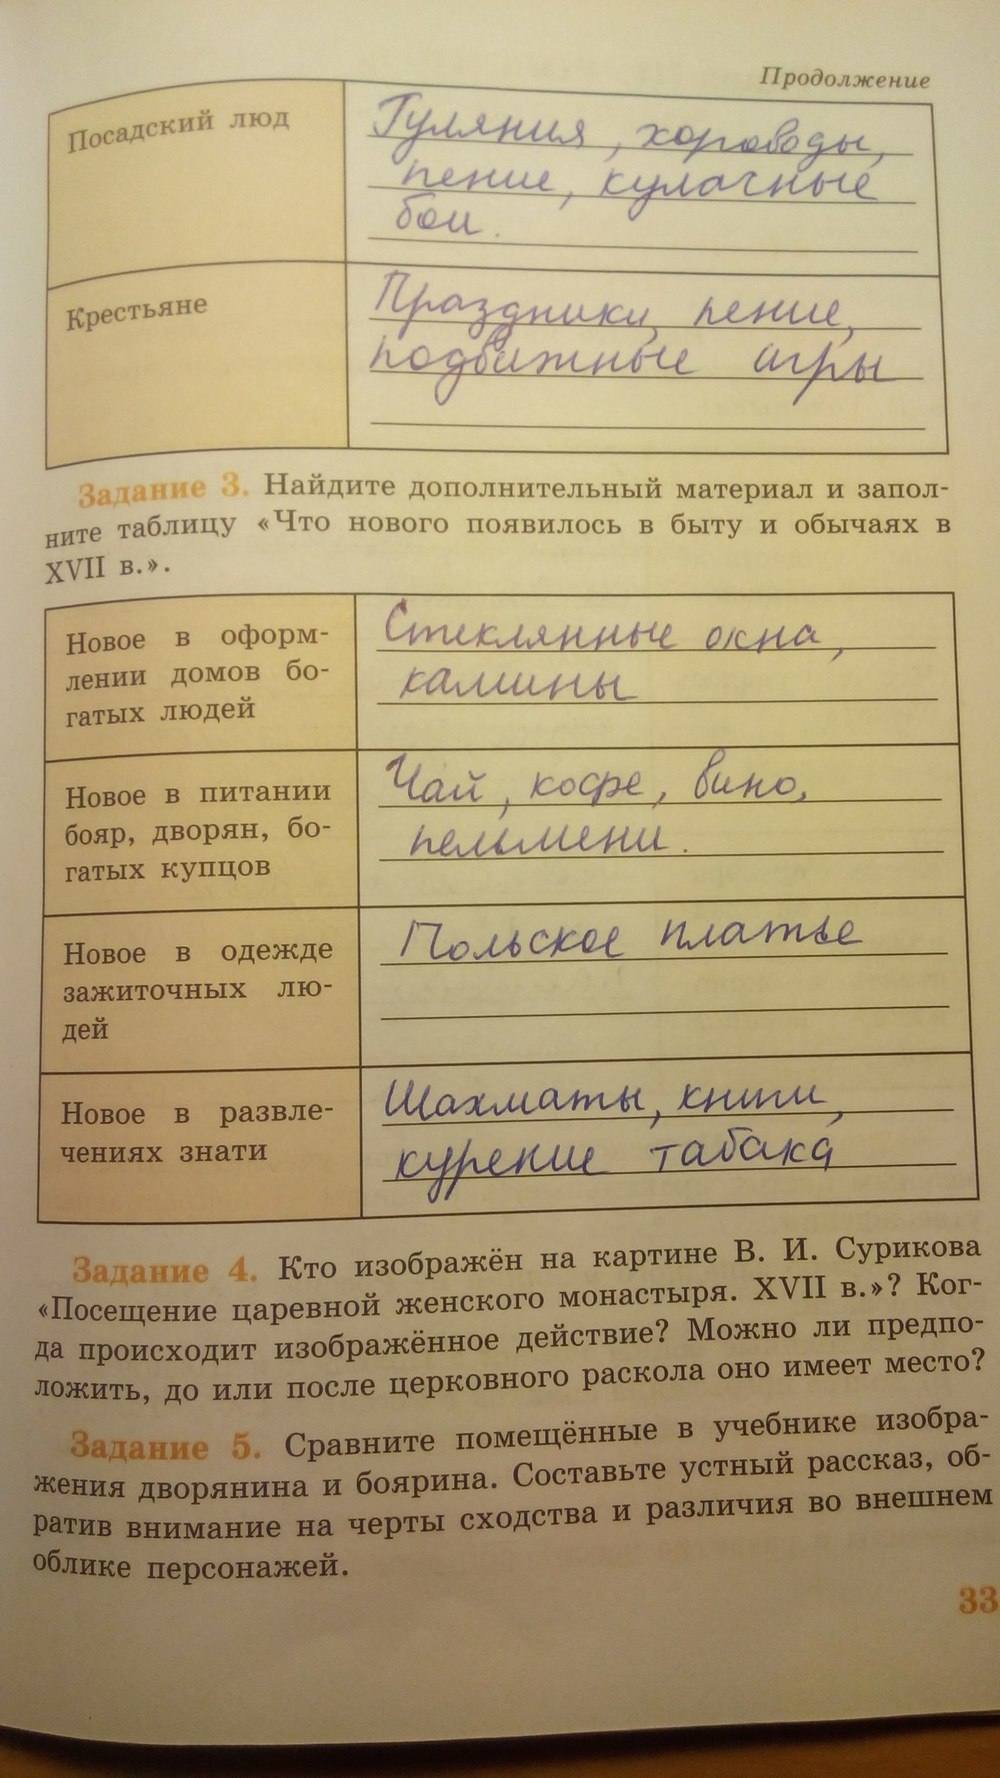 Продолжение
Посадский люд
Гуляния, хороводы,
пение, кулачные
бои.
Крестьяне
Праздники, пение,
подвижные игры
Задание 3. Найдите дополнительный материал и запол-
ните таблицу «Что нового появилось в быту и обычаях в
XVII в.».
Новое в оформ-
лении домов бо-
гатых людей
Стеклянные окна,
камины
Новое в питании
бояр, дворян, бо-
гатых купцов
Чай, кофе, вино,
пельмени.
Новое в одежде
зажиточных лю-
дей
Польское платье
Новое в развле-
чениях знати
Шахматы, книги,
курение табака
Задание 4. Кто изображён на картине В. И. Сурикова
«Посещение царевной женского монастыря. XVII в.»? Ког-
да происходит изображённое действие? Можно ли предпо-
ложить, до или после церковного раскола оно имеет место?
Задание 5. Сравните помещённые в учебнике изобра-
жения дворянина и боярина. Составьте устный рассказ, об-
ратив внимание на черты сходства и различия во внешнем
облике персонажей.
33